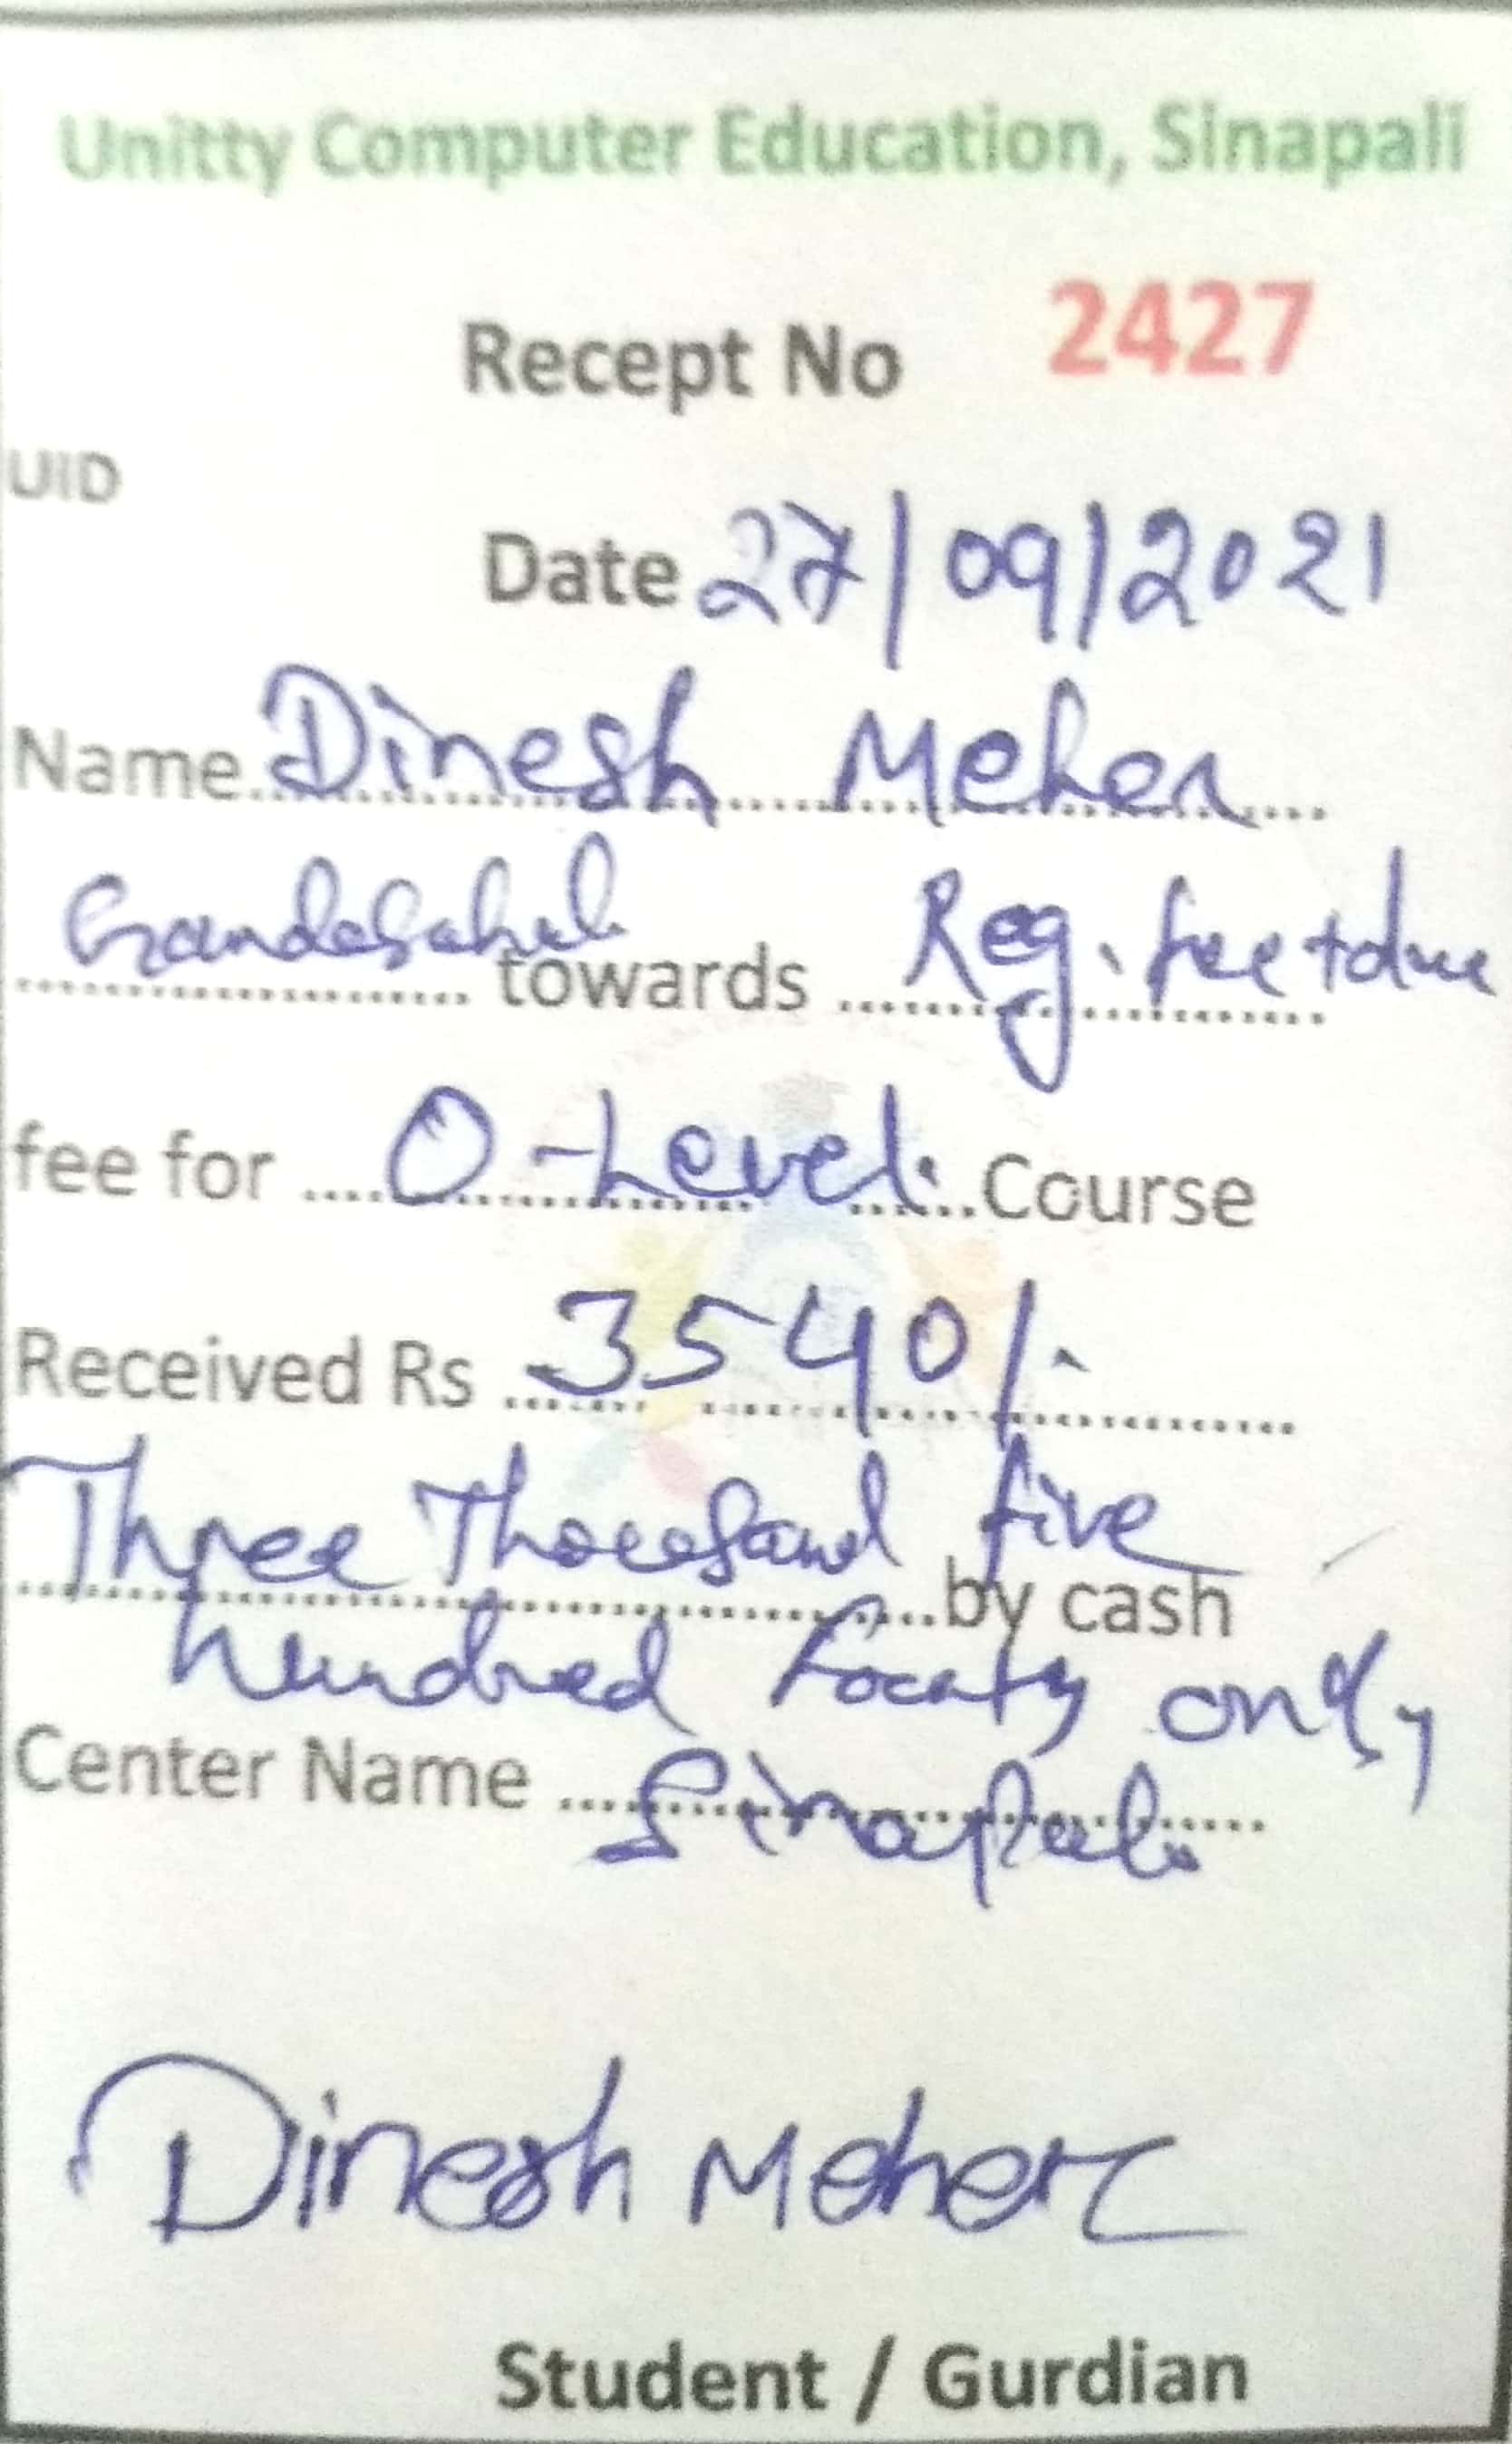 Unitty Computer Education, Sinapali
Recept No 2427
UID
Date 27/09/2021
Name Dinesh Meher
towards Reg. fee + due
fee for O-Level Course
Received Rs 3540/-
Three Thousand five
by cash
hundred Fourty only
Center Name Sinapali
Dinesh Meher
Student / Gurdian